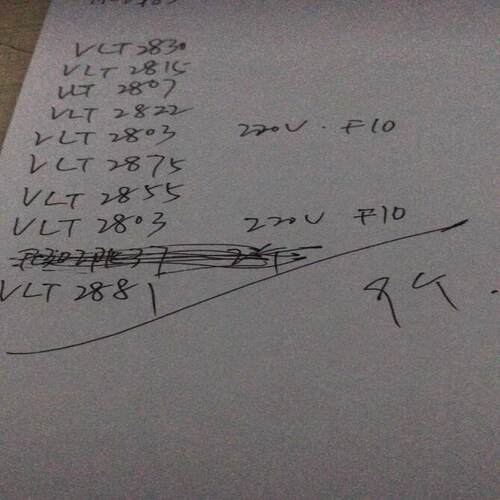 VLT 2830
VLT 2815
VLT 2807
VLT 2822
VLT 2803 220V. F10
VLT 2875
VLT 2855
VLT 2803 220V F10
VLT 2881